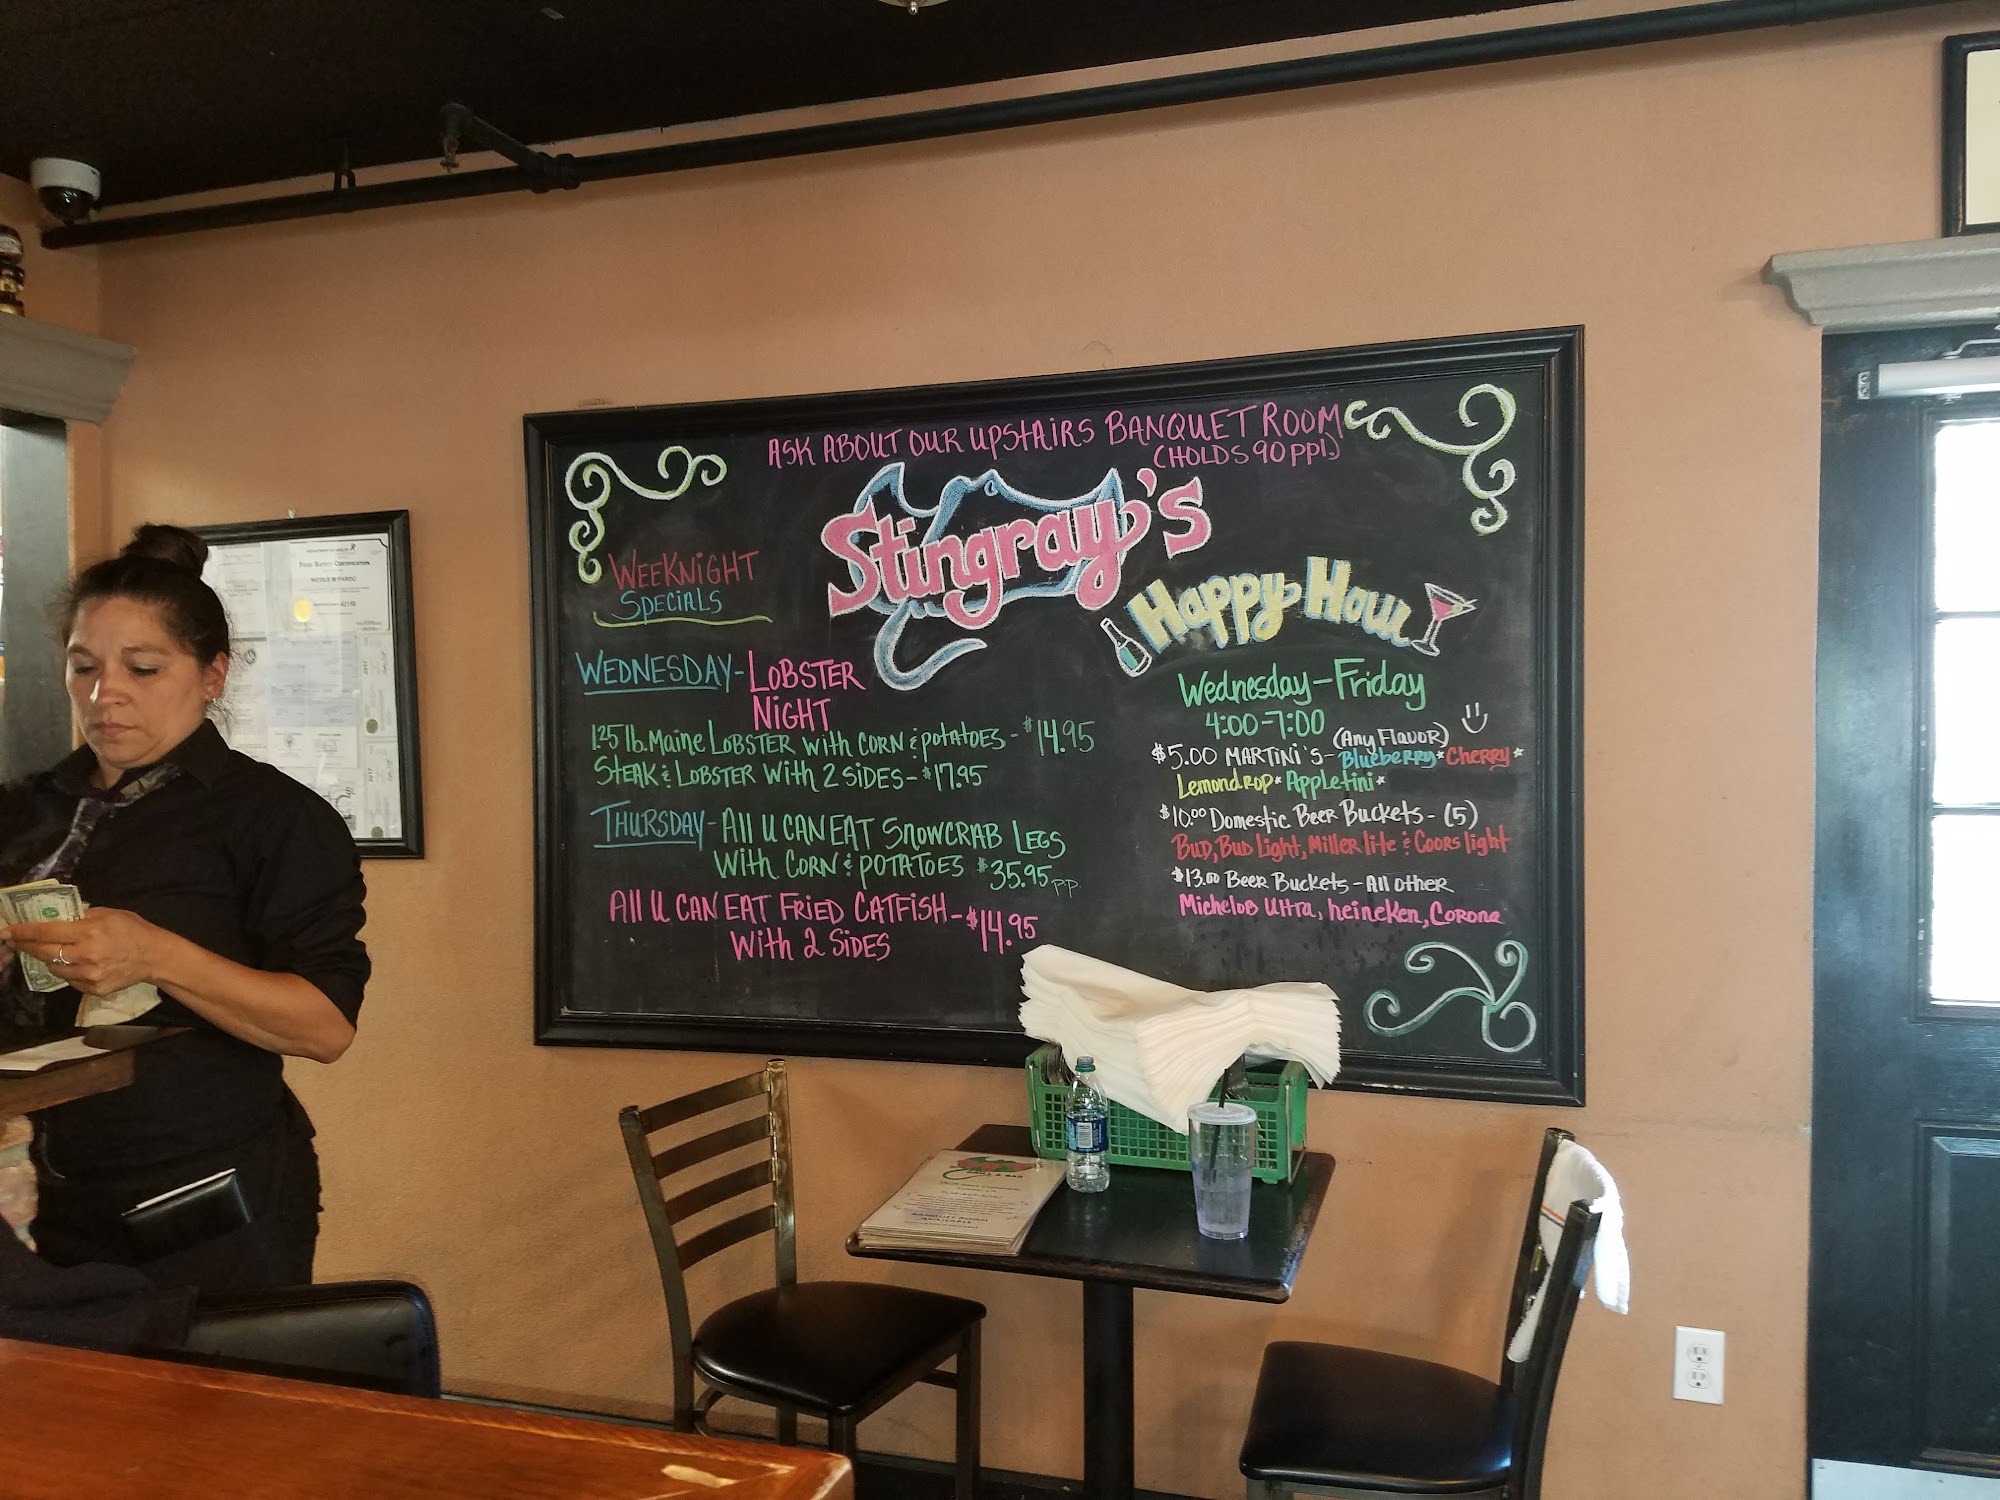 ASK ABOUT OUR UPSTAIRS BANQUET ROOM
(HOLDS 90 PPL.)
Stingray's
WEEKNIGHT
SPECIALS
WEDNESDAY - LOBSTER
NIGHT
1.25 lb. Maine LOBSTER with CORN & POTATOES - $14.95
STEAK & LOBSTER with 2 SIDES - $17.95
THURSDAY - All U CAN EAT SNOWCRAB LEGS
WITH CORN & POTATOES $35.95 P.P.
All U CAN EAT FRIED CATFISH - $14.95
With 2 SIDES
Happy Hour
Wednesday - Friday
4:00-7:00
(Any Flavor)
$5.00 MARTINI'S - Blueberry * Cherry *
Lemondrop * Appletini *
$10.00 Domestic Beer Buckets - (5)
Bud, Bud Light, Miller lite & Coors light
$13.00 Beer Buckets - All other
Michelob Ultra, heineken, Corona
FOOD SAFETY CERTIFICATION
NICOLE M PARDO
GRILL & BAR
BANQUET ROOM
AVAILABLE
2017
2017